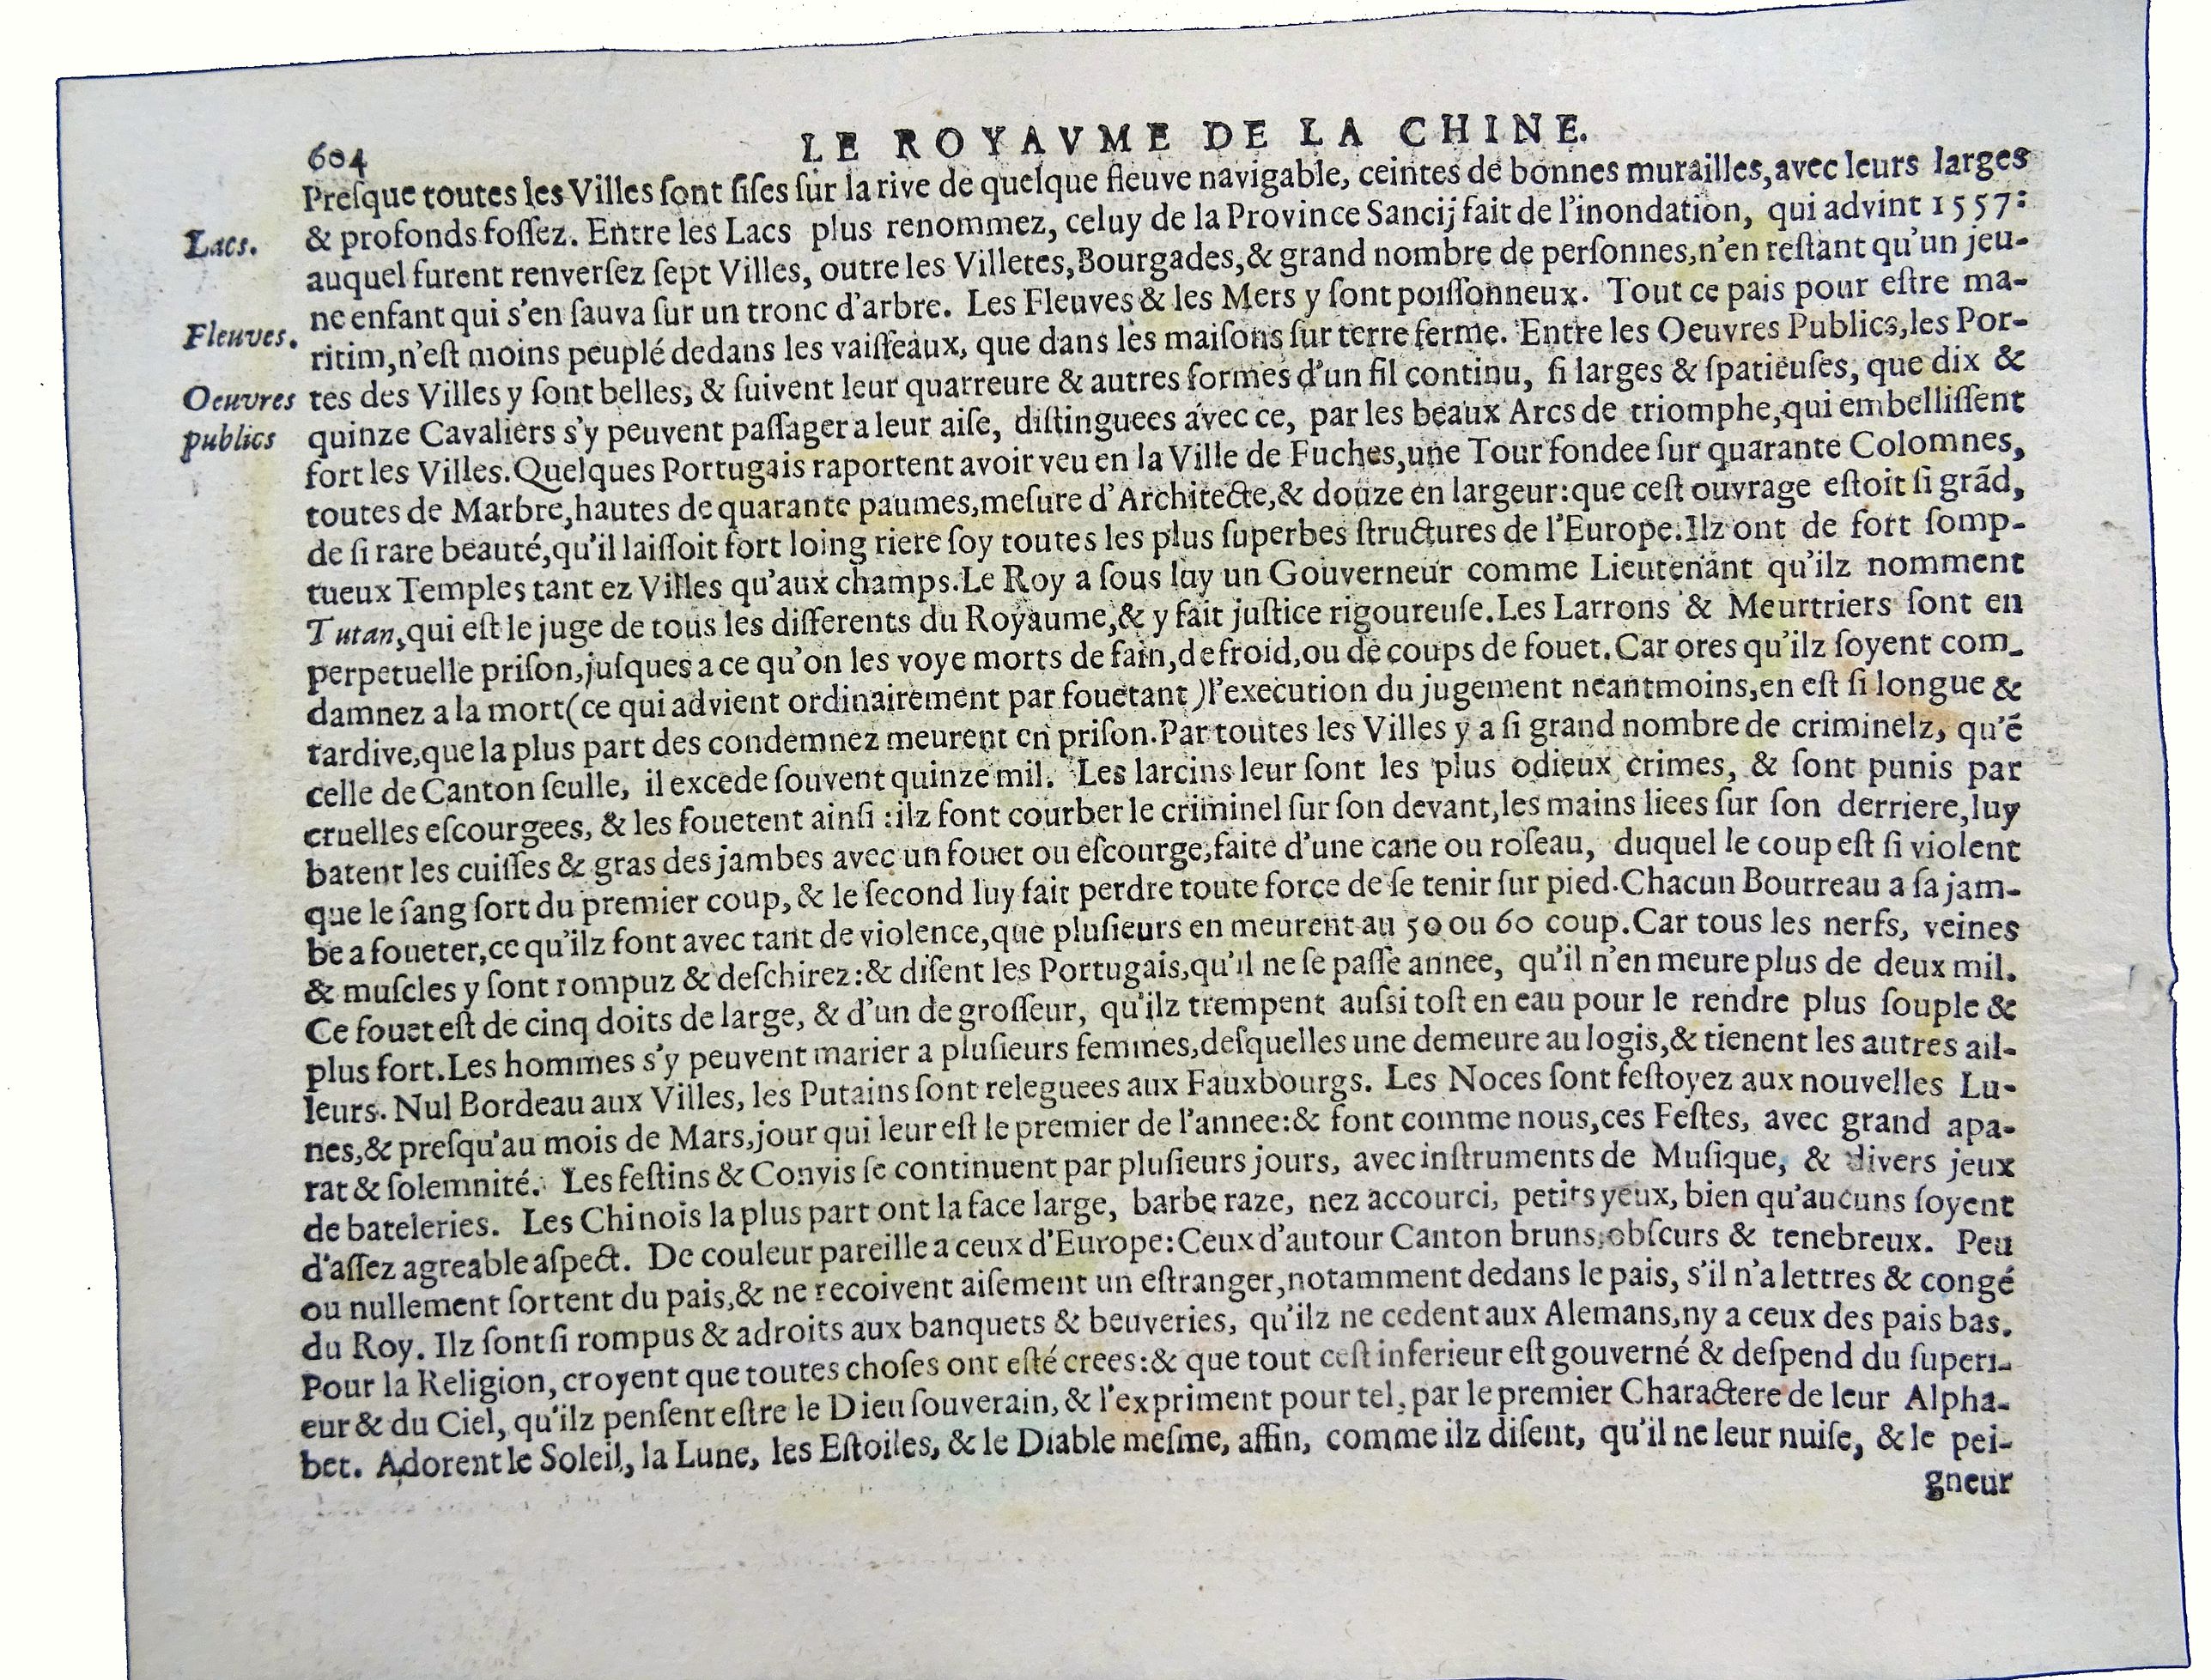 604
LE ROYAVME DE LA CHINE.
Preſque toutes les Villes ſont ſiſes ſur la rive de quelque fleuve navigable, ceintes de bonnes murailles, avec leurs larges
Lacs.
& profonds foſſez. Entre les Lacs plus renommez, celuy de la Province Sancij fait de l'inondation, qui advint 1557:
auquel furent renverſez ſept Villes, outre les Villetes, Bourgades, & grand nombre de perſonnes, n'en reſtant qu'un jeu-
ne enfant qui s'en ſauva ſur un tronc d'arbre. Les Fleuves & les Mers y ſont poiſſonneux. Tout ce pais pour eſtre ma-
Fleuves.
ritim, n'eſt moins peuplé dedans les vaiſſeaux, que dans les maiſons ſur terre ferme. Entre les Oeuvres Publics, les Por-
Oeuvres
tes des Villes y ſont belles, & ſuivent leur quarreure & autres formes d'un fil continu, ſi larges & ſpatieuſes, que dix &
publics
quinze Cavaliers s'y peuvent paſſager a leur aiſe, diſtinguees avec ce, par les beaux Arcs de triomphe, qui embelliſſent
fort les Villes. Quelques Portugais raportent avoir veu en la Ville de Fuches, une Tour fondee ſur quarante Colomnes,
toutes de Marbre, hautes de quarante paumes, meſure d'Architecte, & douze en largeur: que ceſt ouvrage eſtoit ſi grãd,
de ſi rare beauté, qu'il laiſſoit fort loing riere ſoy toutes les plus ſuperbes ſtructures de l'Europe. Ilz ont de fort ſomp-
tueux Temples tant ez Villes qu'aux champs. Le Roy a ſous luy un Gouverneur comme Lieutenant qu'ilz nomment
Tutan, qui eſt le juge de tous les differents du Royaume, & y fait juſtice rigoureuſe. Les Larrons & Meurtriers ſont en
perpetuelle priſon, juſques a ce qu'on les voye morts de fain, de froid, ou de coups de fouet. Car ores qu'ilz ſoyent com-
damnez a la mort (ce qui advient ordinairement par fouetant) l'execution du jugement neantmoins, en eſt ſi longue &
tardive, que la plus part des condemnez meurent en priſon. Par toutes les Villes y a ſi grand nombre de criminelz, qu'ẽ
celle de Canton ſeulle, il excede ſouvent quinze mil. Les larcins leur ſont les plus odieux crimes, & ſont punis par
cruelles eſcourgees, & les fouetent ainſi: ilz font courber le criminel ſur ſon devant, les mains liees ſur ſon derriere, luy
batent les cuiſſes & gras des jambes avec un fouet ou eſcourge, faite d'une cane ou roſeau, duquel le coup eſt ſi violent
que le ſang ſort du premier coup, & le ſecond luy fait perdre toute force de ſe tenir ſur pied. Chacun Bourreau a ſa jam-
be a foueter, ce qu'ilz font avec tant de violence, que pluſieurs en meurent au 50 ou 60 coup. Car tous les nerfs, veines
& muſcles y ſont rompuz & deſchirez: & diſent les Portugais, qu'il ne ſe paſſe annee, qu'il n'en meure plus de deux mil.
Ce fouet eſt de cinq doits de large, & d'un de groſſeur, qu'ilz trempent auſsi toſt en eau pour le rendre plus ſouple &
plus fort. Les hommes s'y peuvent marier a pluſieurs femmes, deſquelles une demeure au logis, & tienent les autres ail-
leurs. Nul Bordeau aux Villes, les Putains ſont releguees aux Fauxbourgs. Les Noces ſont feſtoyez aux nouvelles Lu-
nes, & preſqu'au mois de Mars, jour qui leur eſt le premier de l'annee: & font comme nous, ces Feſtes, avec grand apa-
rat & ſolemnité. Les feſtins & Convis ſe continuent par pluſieurs jours, avec inſtruments de Muſique, & divers jeux
de bateleries. Les Chinois la plus part ont la face large, barbe raze, nez accourci, petits yeux, bien qu'aucuns ſoyent
d'aſſez agreable aſpect. De couleur pareille a ceux d'Europe: Ceux d'autour Canton bruns, obſcurs & tenebreux. Peu
ou nullement ſortent du pais, & ne recoivent aiſement un eſtranger, notamment dedans le pais, s'il n'a lettres & congé
du Roy. Ilz ſont ſi rompus & adroits aux banquets & beuveries, qu'ilz ne cedent aux Alemans, ny a ceux des pais bas.
Pour la Religion, croyent que toutes choſes ont eſté crees: & que tout ceſt inferieur eſt gouverné & deſpend du ſuperi-
eur & du Ciel, qu'ilz penſent eſtre le Dieu ſouverain, & l'expriment pour tel, par le premier Charactere de leur Alpha-
bet. Adorent le Soleil, la Lune, les Eſtoiles, & le Diable meſme, affin, comme ilz diſent, qu'il ne leur nuiſe, & le pei-
gneur